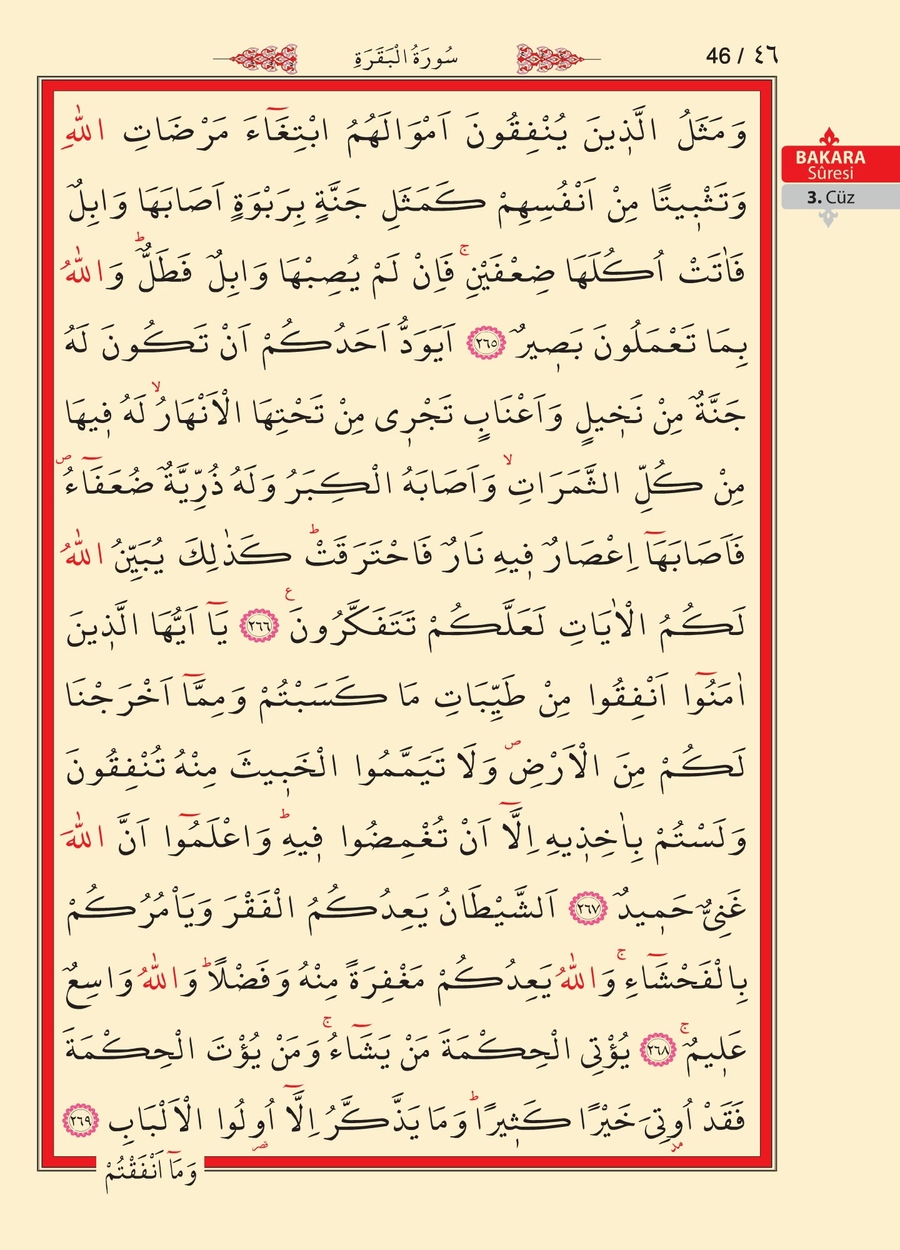 سُورَةُ الْبَقَرَةِ
46 / ٤٦
BAKARA
Sûresi
3. Cüz
وَمَثَلُ الَّذ۪ينَ يُنْفِقُونَ اَمْوَالَهُمُ ابْتِغَٓاءَ مَرْضَاتِ اللّٰهِ
وَتَثْب۪يتًا مِنْ اَنْفُسِهِمْ كَمَثَلِ جَنَّةٍ بِرَبْوَةٍ اَصَابَهَا وَابِلٌ
فَاٰتَتْ اُكُلَهَا ضِعْفَيْنِۚ فَاِنْ لَمْ يُصِبْهَا وَابِلٌ فَطَلٌّۜ وَاللّٰهُ
بِمَا تَعْمَلُونَ بَص۪يرٌ ﴿٢٦٥﴾ اَيَوَدُّ اَحَدُكُمْ اَنْ تَكُونَ لَهُ
جَنَّةٌ مِنْ نَخ۪يلٍ وَاَعْنَابٍ تَجْر۪ى مِنْ تَحْتِهَا الْاَنْهَارُۙ لَهُ ف۪يهَا
مِنْ كُلِّ الثَّمَرَاتِۙ وَاَصَابَهُ الْكِبَرُ وَلَهُ ذُرِّيَّةٌ ضُعَفَٓاءُۖ
فَاَصَابَهَٓا اِعْصَارٌ ف۪يهِ نَارٌ فَاحْتَرَقَتْۜ كَذٰلِكَ يُبَيِّنُ اللّٰهُ
لَكُمُ الْاٰيَاتِ لَعَلَّكُمْ تَتَفَكَّرُونَ۟ ﴿٢٦٦﴾ يَٓا اَيُّهَا الَّذ۪ينَ
اٰمَنُٓوا اَنْفِقُوا مِنْ طَيِّبَاتِ مَا كَسَبْتُمْ وَمِمَّٓا اَخْرَجْنَا
لَكُمْ مِنَ الْاَرْضِۖ وَلَا تَيَمَّمُوا الْخَب۪يثَ مِنْهُ تُنْفِقُونَ
وَلَسْتُمْ بِاٰخِذ۪يهِ اِلَّٓا اَنْ تُغْمِضُوا ف۪يهِۜ وَاعْلَمُٓوا اَنَّ اللّٰهَ
غَنِىٌّ حَم۪يدٌ ﴿٢٦٧﴾ اَلشَّيْطَانُ يَعِدُكُمُ الْفَقْرَ وَيَأْمُرُكُمْ
بِالْفَحْشَٓاءِۚ وَاللّٰهُ يَعِدُكُمْ مَغْفِرَةً مِنْهُ وَفَضْلًاۜ وَاللّٰهُ وَاسِعٌ
عَل۪يمٌۚ ﴿٢٦٨﴾ يُؤْتِى الْحِكْمَةَ مَنْ يَشَٓاءُۚ وَمَنْ يُؤْتَ الْحِكْمَةَ
فَقَدْ اُو۫تِىَ خَيْرًا كَث۪يرًاۜ وَمَا يَذَّكَّرُ اِلَّٓا اُو۬لُوا الْاَلْبَابِ ﴿٢٦٩﴾
وَمَٓا اَنْفَقْتُمْ